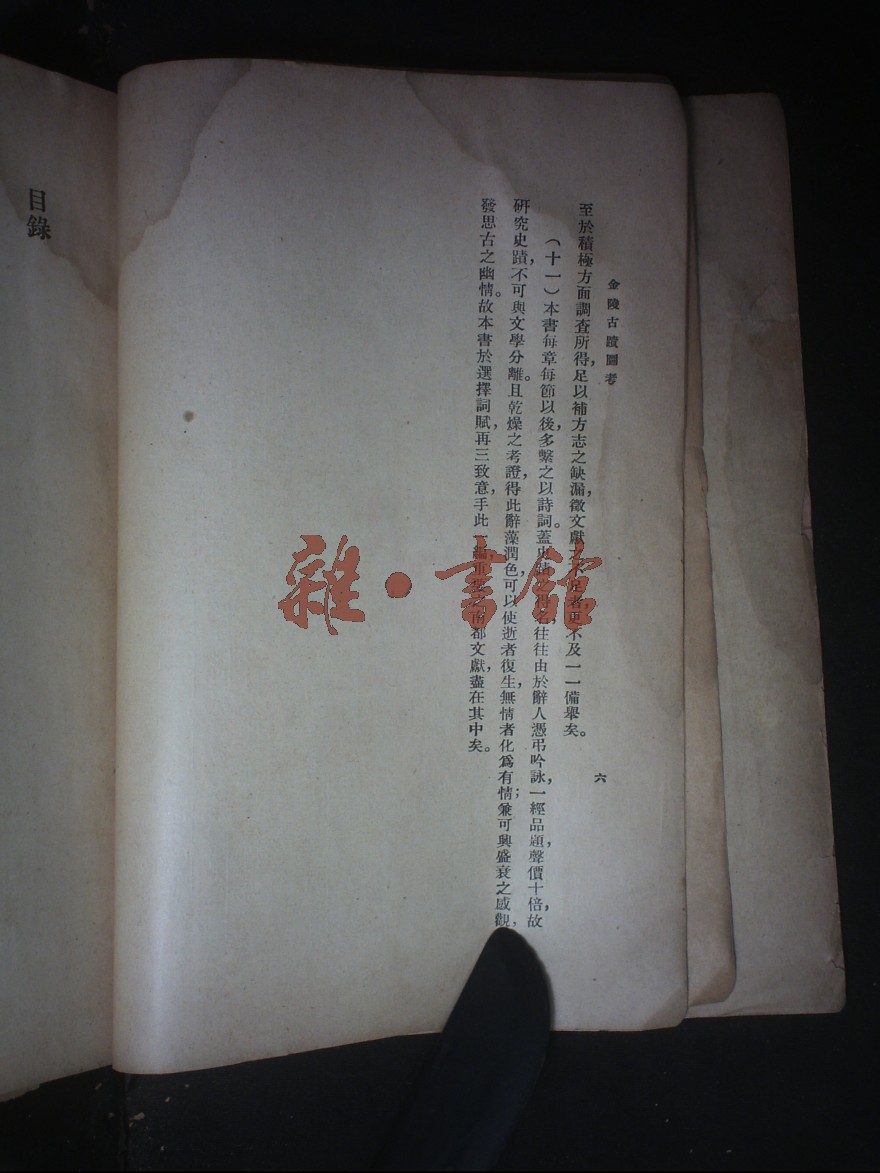 金陵古蹟圖考
六
至於積極方面調查所得，足以補方志之缺漏，徵文獻之不足者，更不及一一備舉矣。
（十一）本書每章每節以後，多繫之以詩詞。蓋史蹟之得名，往往由於辭人憑弔吟詠，一經品題，聲價十倍，故
研究史蹟，不可與文學分離。且乾燥之考證，得此辭藻潤色，可以使逝者復生，無情者化爲有情；兼可興盛衰之感觀，
發思古之幽情。故本書於選擇詞賦，再三致意，手此一編，南都文獻，盡在其中矣。
目錄
雜·書館